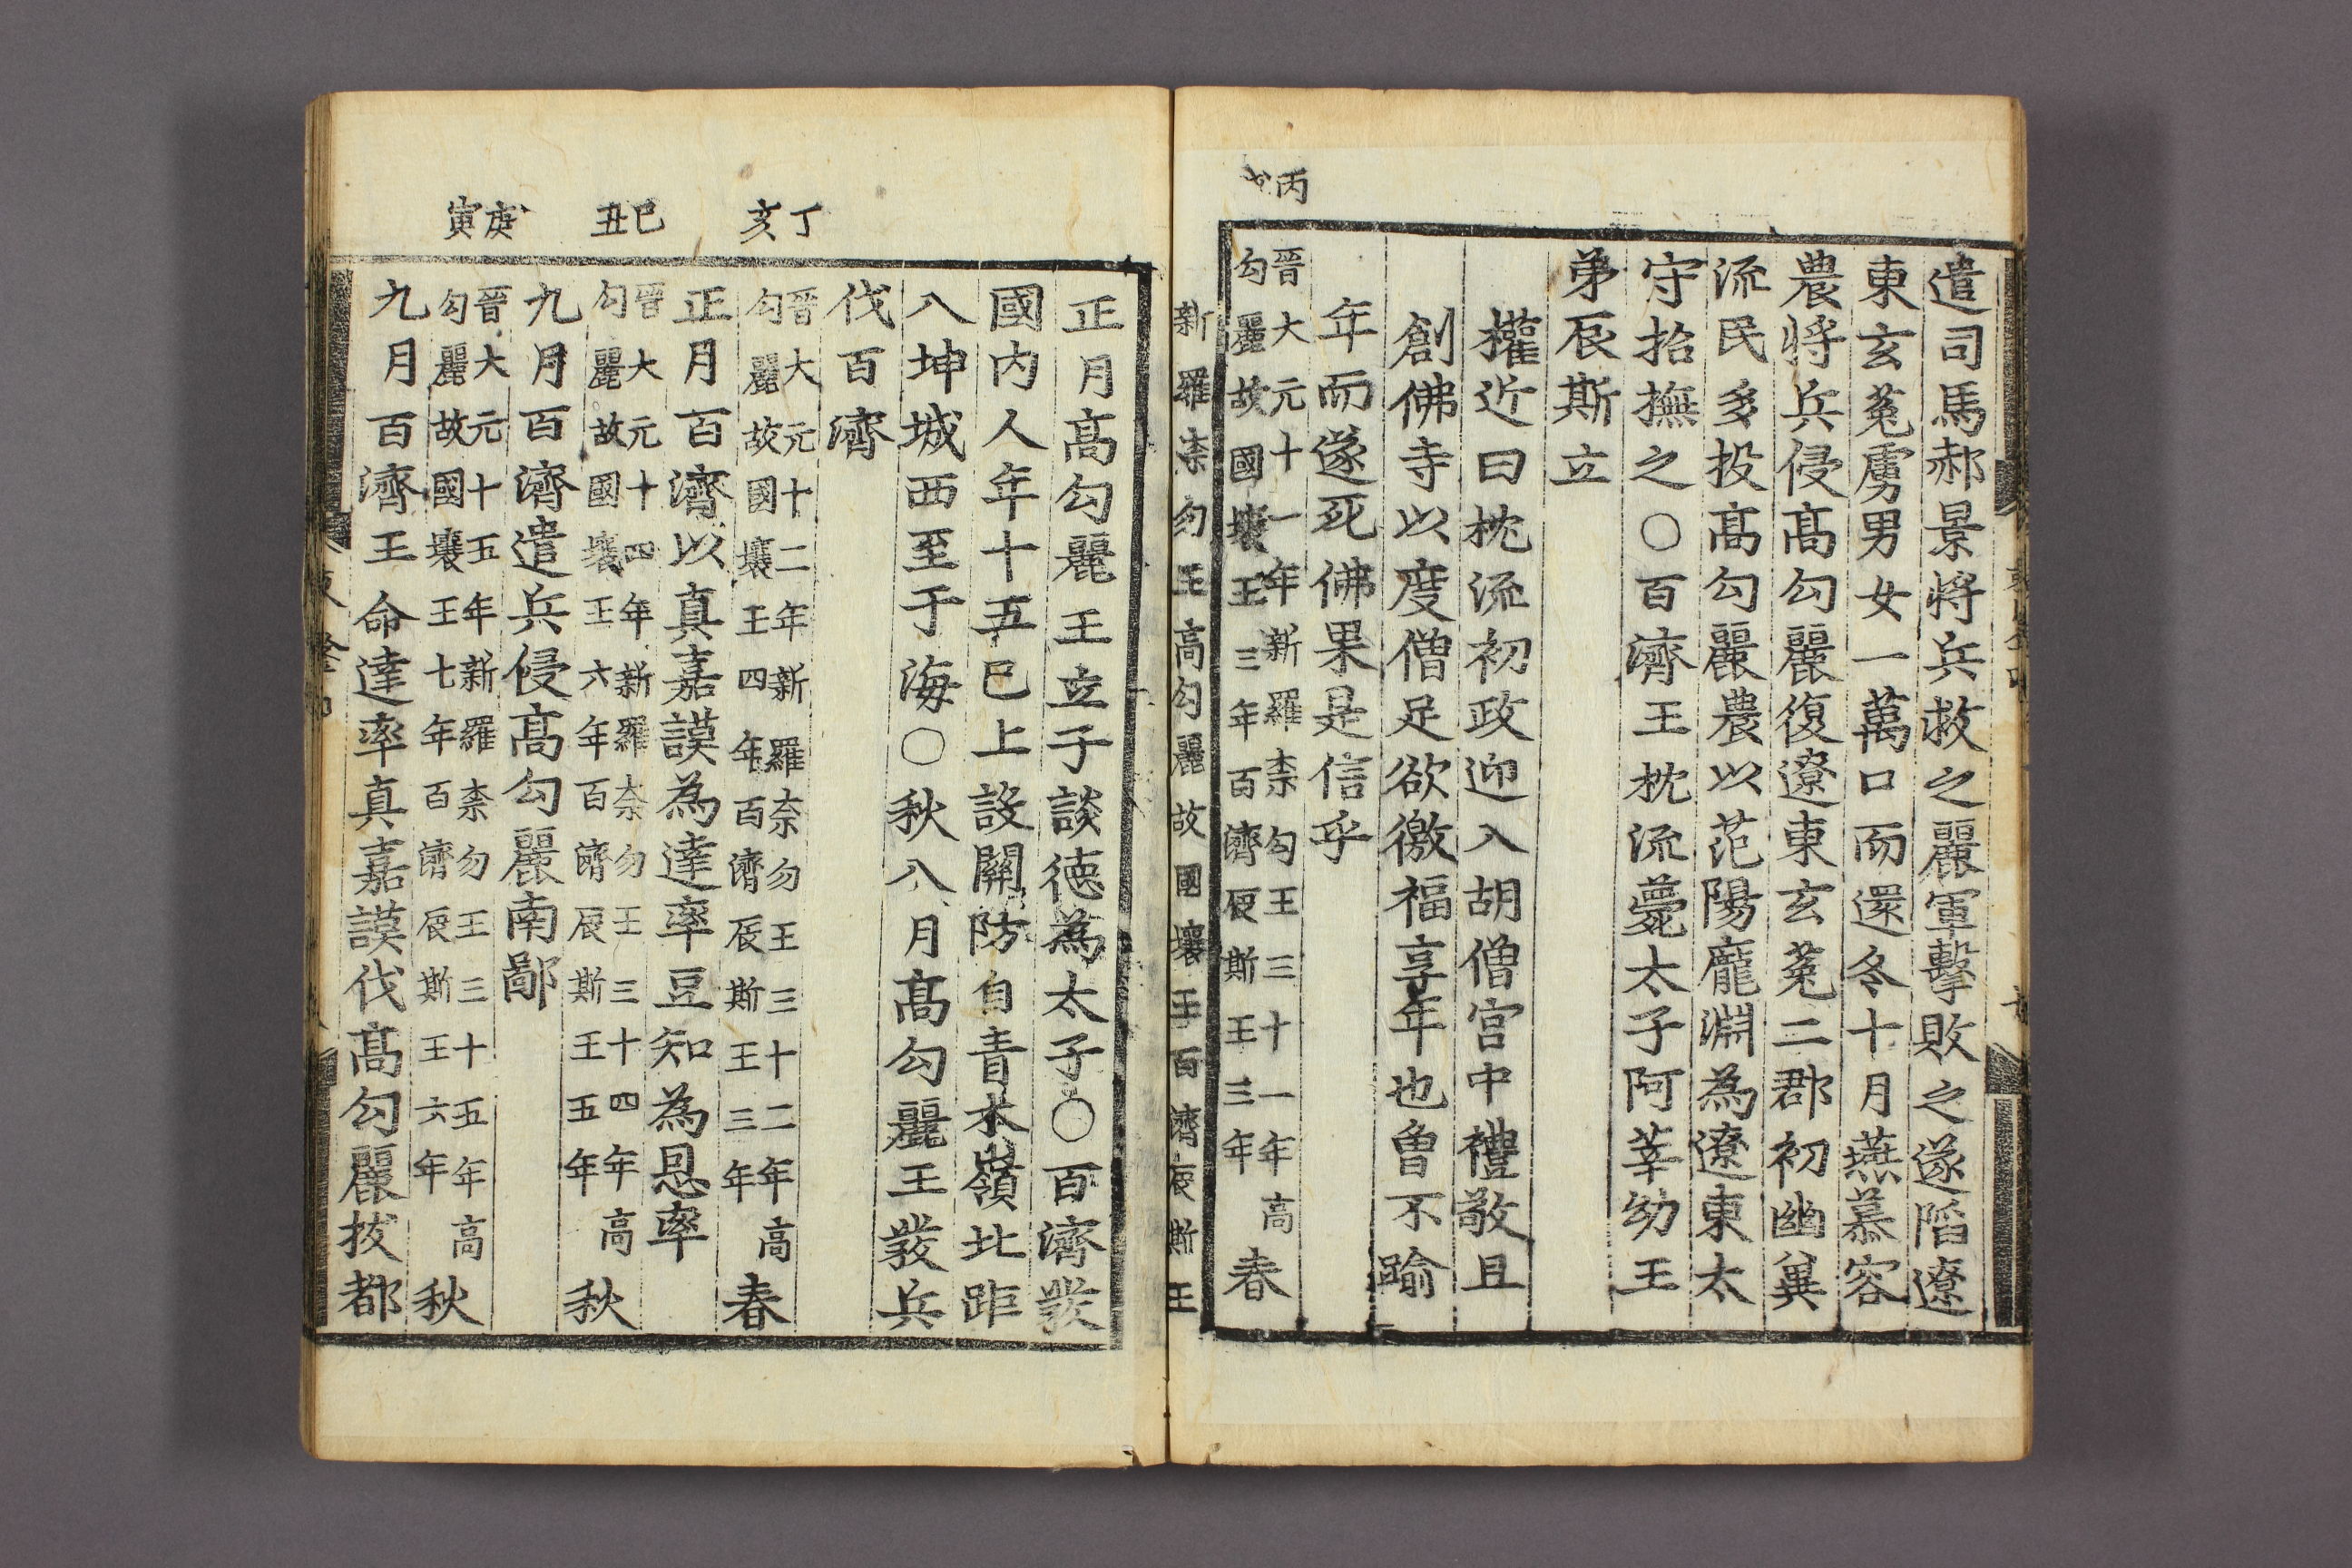 遣司馬郝景將兵救之麗軍擊敗之遂陷遼
東玄菟虜男女一萬口而還冬十月燕慕容
農將兵侵高勾麗復遼東玄菟二郡初幽冀
流民多投高勾麗農以范陽龐淵為遼東太
守招撫之○百濟王枕流薨太子阿莘幼王
弟辰斯立
權近曰枕流初政迎入胡僧宮中禮敬且
創佛寺以度僧足欲徼福享年也曾不踰
年而遂死佛果是信乎
丙
晉大元十一年新羅柰勿王三十一年高
勾麗故國壤王三年百濟辰斯王三年
春
新羅柰勿王高勾麗故國壤王百濟辰斯王
正月高勾麗王立子談德為太子○百濟發
國內人年十五已上設關防自青木嶺北距
八坤城西至于海○秋八月高勾麗王發兵
伐百濟
丁亥
晉大元十二年新羅奈勿王三十二年高
勾麗故國壤王四年百濟辰斯王三年
春
正月百濟以真嘉謨為達率豆知為恩率
己丑
晉大元十四年新羅奈勿王三十四年高
勾麗故國壤王六年百濟辰斯王五年
秋
九月百濟遣兵侵高勾麗南鄙
庚寅
晉大元十五年新羅柰勿王三十五年高
勾麗故國壤王七年百濟辰斯王六年
秋
九月百濟王命達率真嘉謨伐高勾麗拔都